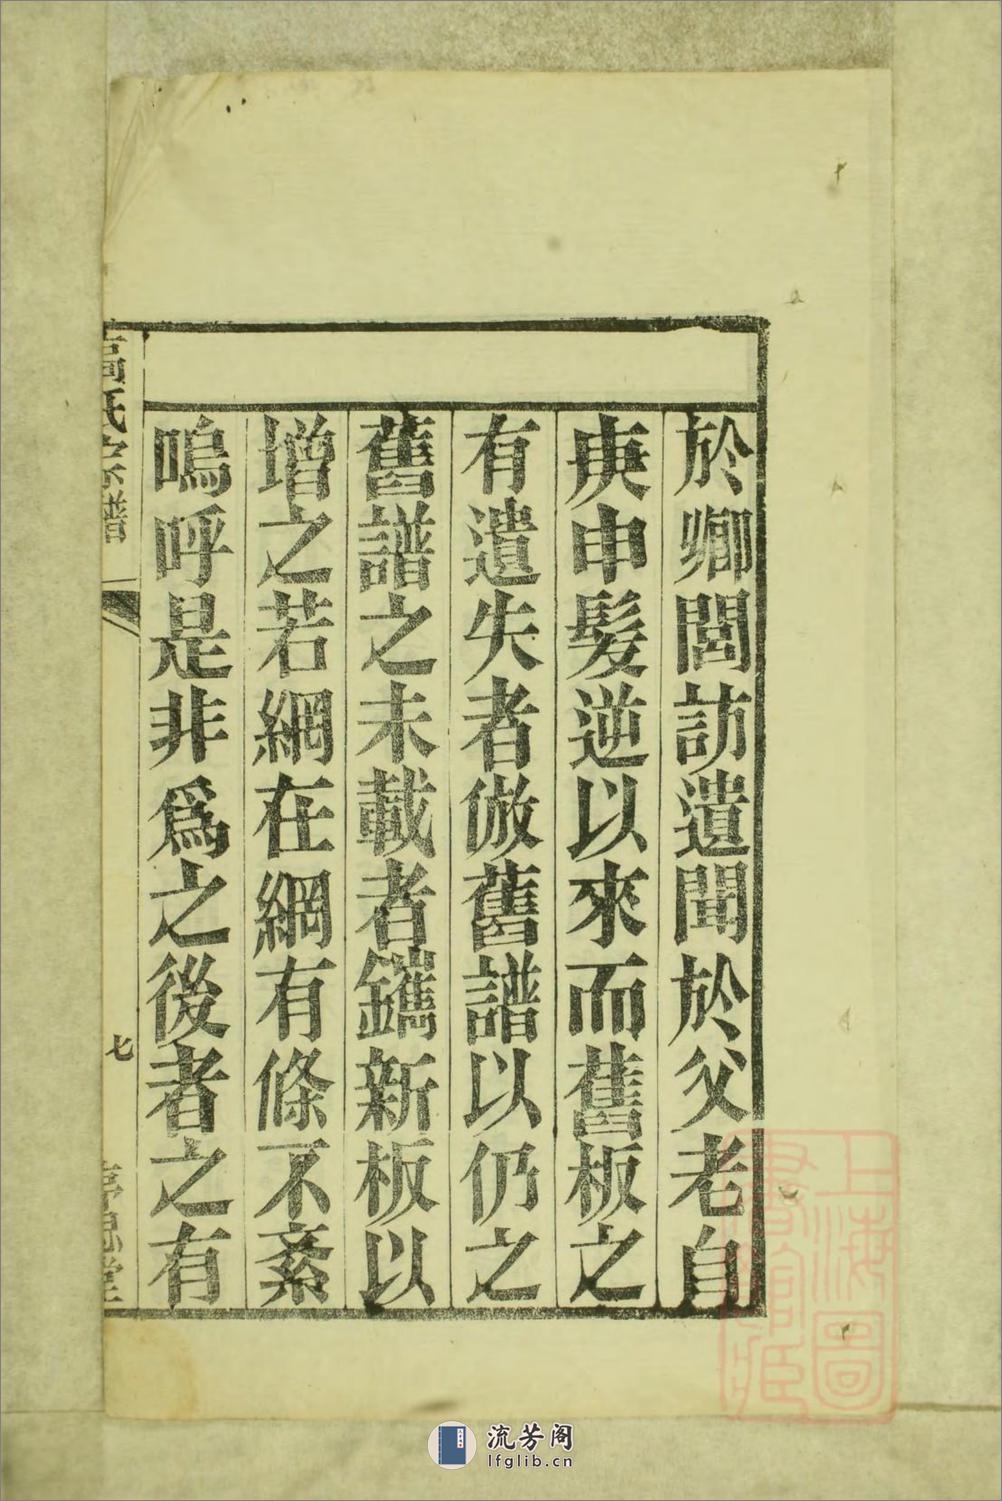 於鄉閭訪遺聞於父老自
庚申髮逆以來而舊板之
有遺失者倣舊譜以仍之
舊譜之未載者鐫新板以
增之若網在綱有條不紊
嗚呼是非爲之後者之有
高氏宗譜
七
上海圖
書館藏
流芳阁
lfglib.cn